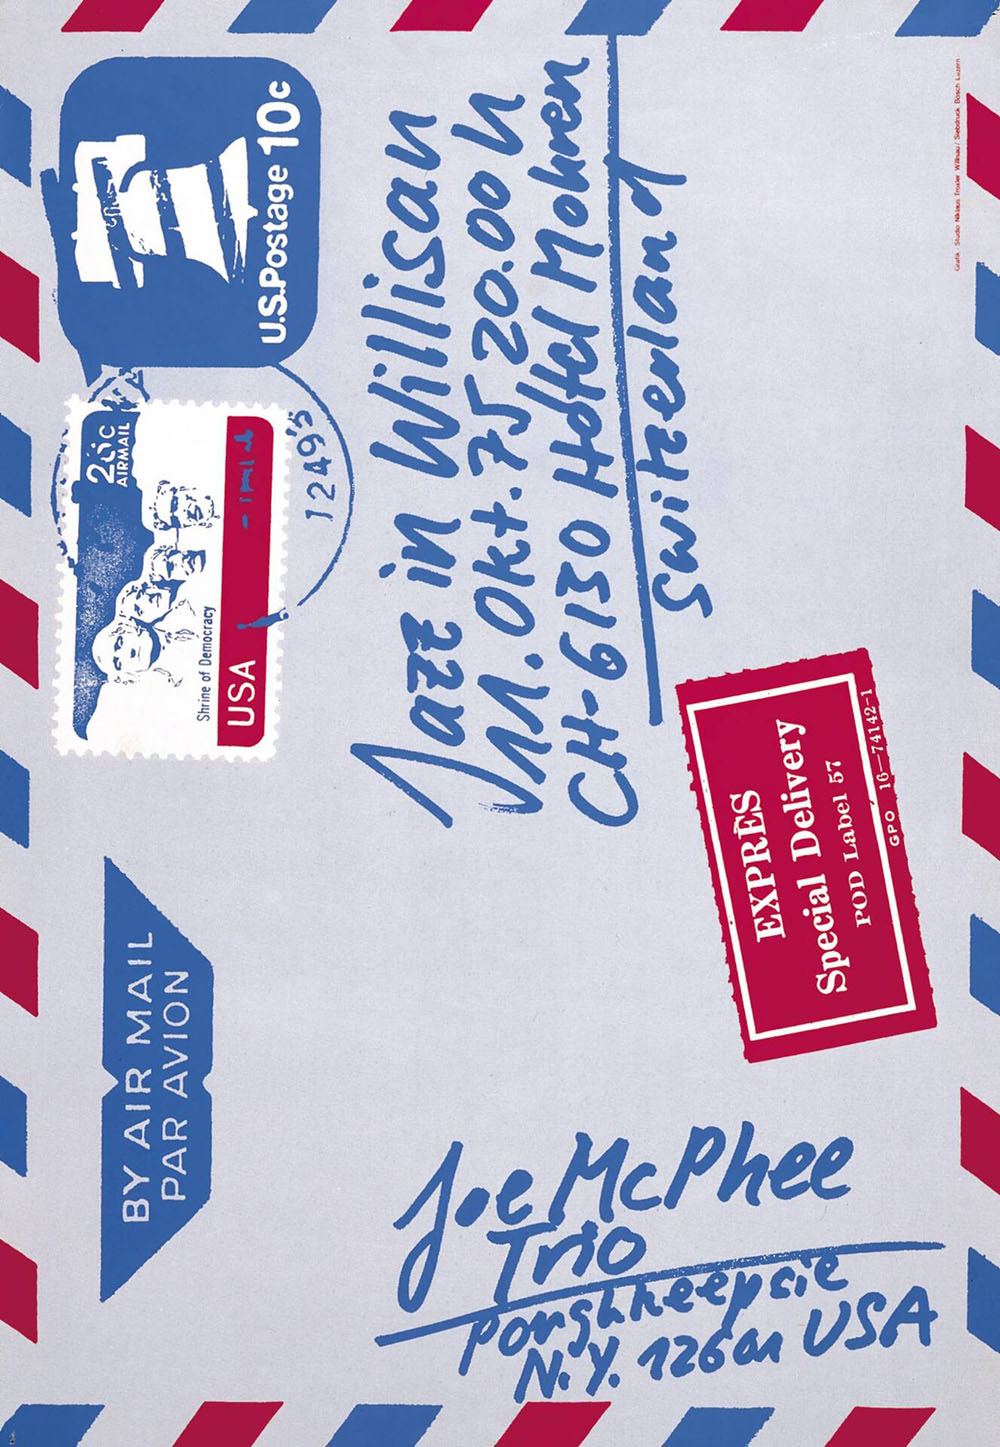 U.S.Postage 10c
AIRMAIL
Shrine of Democracy
USA
12495
Jazz in Willisau
11. Okt. 75 20.00 h
CH-6130 Hotel Mohren
Switzerland
EXPRÈS
Special Delivery
POD Label 57
GPO 16—74142-1
BY AIR MAIL
PAR AVION
Joe McPhee
Trio
Poughkeepsie
N.Y. 12601 USA
Grafik: Studio Niklaus Troxler Willisau / Siebdruck Bösch Luzern